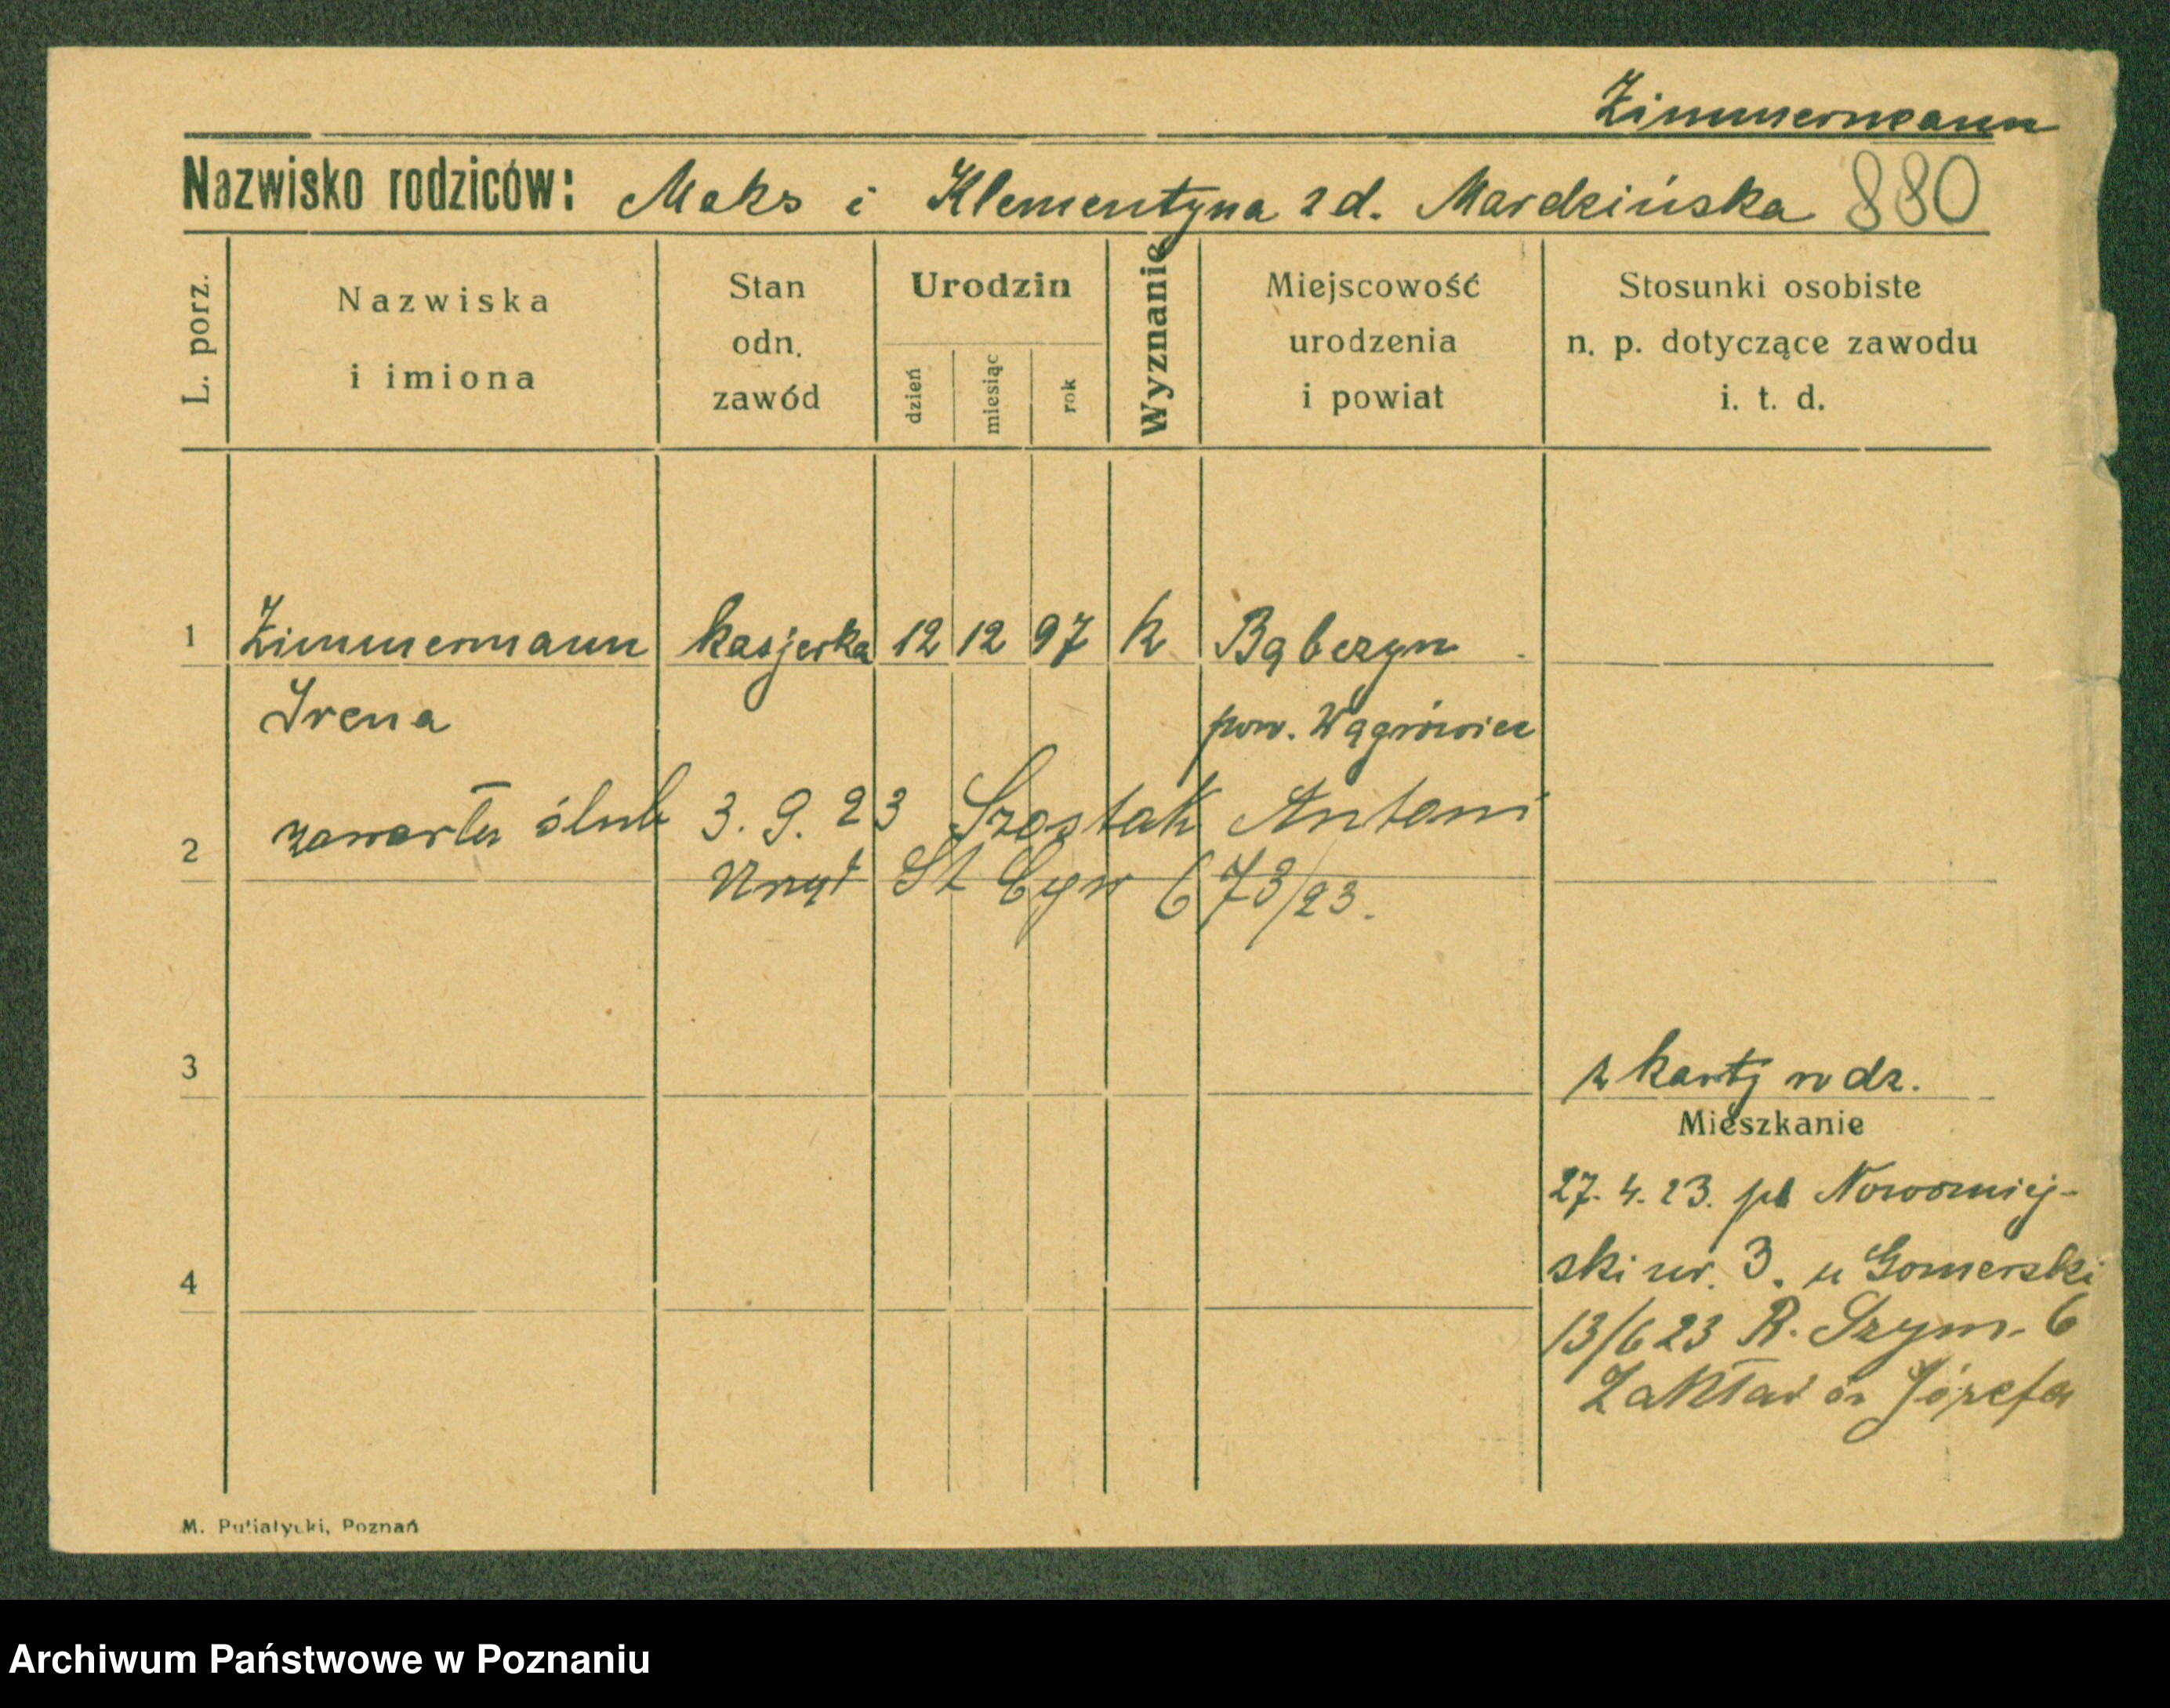 Zimmermann
Nazwisko rodziców: Maks i Klementyna z d. Mardzińska 880
L. porz.
Nazwiska
i imiona
Stan
odn.
zawód
Urodzin
dzień
miesiąc
rok
Wyznanie
Miejscowość
urodzenia
i powiat
Stosunki osobiste
n. p. dotyczące zawodu
i. t. d.
1 Zimmermann kasjerka 12 12 97 k Bąbczyn
Irena pow. Wągrówiec
2 zawarła ślub 3. 9. 23 Szostak Antoni
Urząd St Cyw 673/23.
3 z karty rodz.
Mieszkanie
27. 4. 23. pl Nowomiej-
ski nr. 3. u Gomerski
4
13/6 23 R. Szym. 6
Zakład św Józefa
M. Putiatycki, Poznań
Archiwum Państwowe w Poznaniu